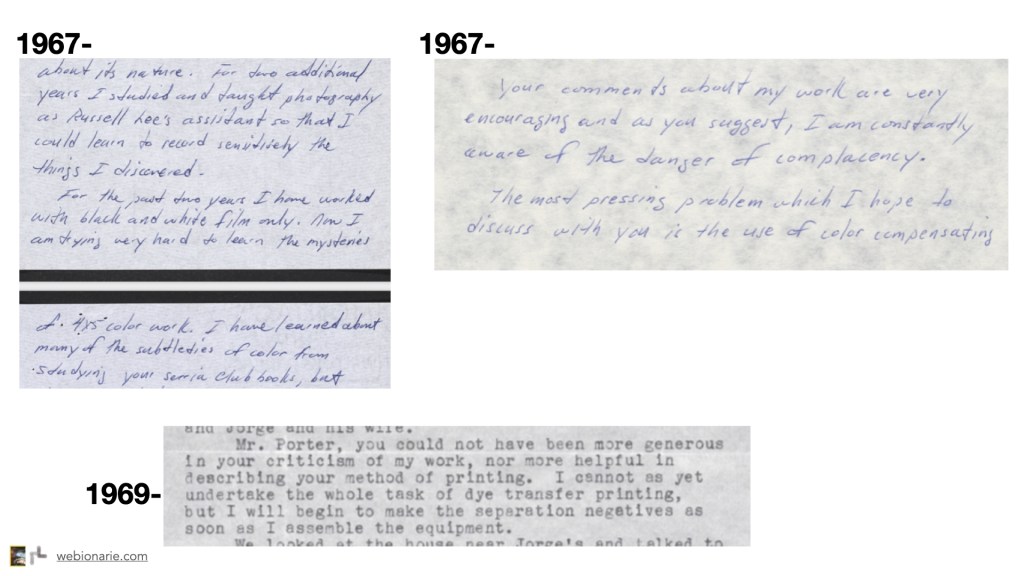 1967-
about its nature. For two additional
years I studied and taught photography
as Russell Lee's assistant so that I
could learn to record sensitively the
things I discovered.
For the past two years I have worked
with black and white film only. Now I
am trying very hard to learn the mysteries
of 4x5 color work. I have learned about
many of the subtleties of color from
studying your serria Club books, but
1967-
Your comments about my work are very
encouraging and as you suggest, I am constantly
aware of the danger of complacency.
The most pressing problem which I hope to
discuss with you is the use of color compensating
1969-
and Jorge and his wife.
Mr. Porter, you could not have been more generous
in your criticism of my work, nor more helpful in
describing your method of printing. I cannot as yet
undertake the whole task of dye transfer printing,
but I will begin to make the separation negatives as
soon as I assemble the equipment.
We looked at the house near Jorge's and talked to
webionarie.com